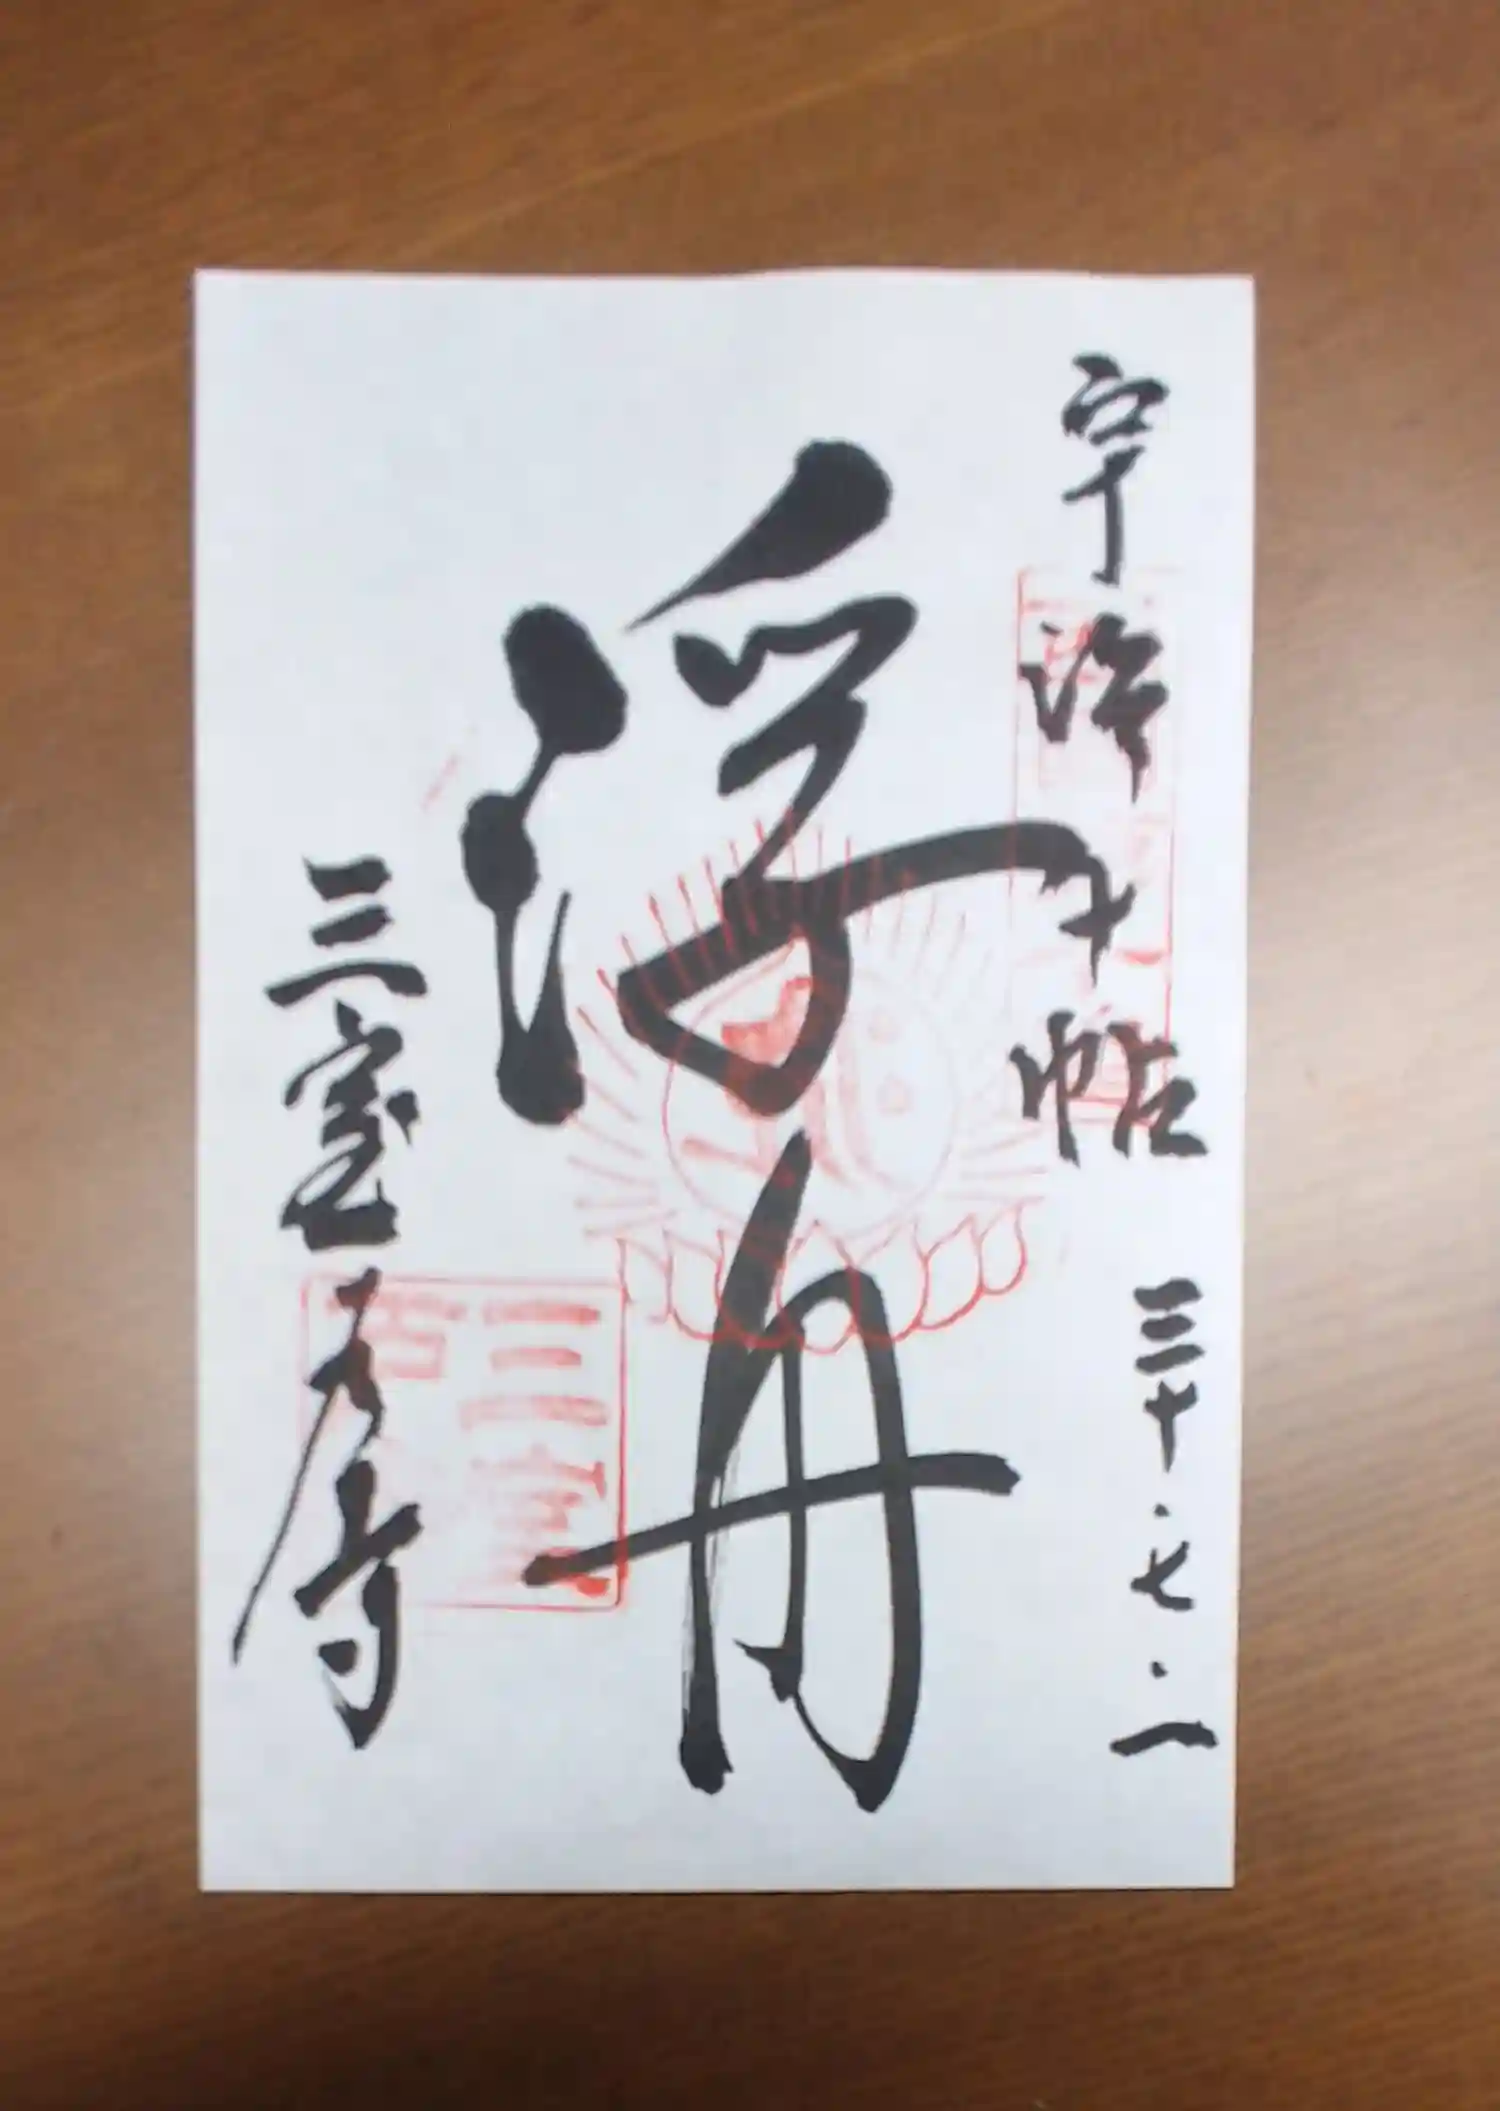 宇治十帖 三十・七・一
浮舟
三室戸寺